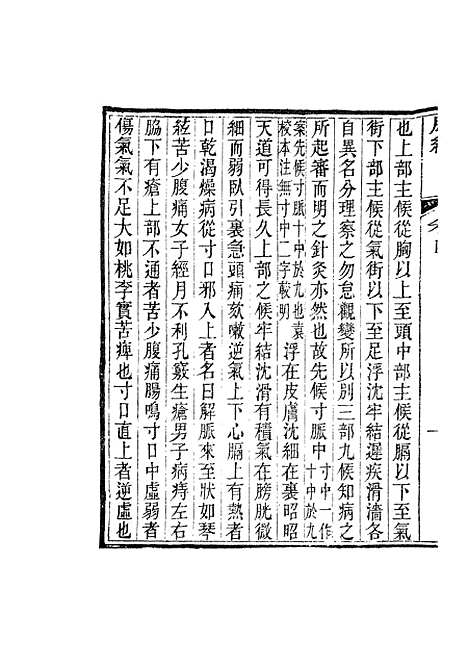 也上部主候從胸以上至頭中部主候從膈以下至氣
街下部主候從氣街以下至足浮沈牢結遲疾滑濇各
自異名分理察之勿怠觀變所以別三部九候知病之
所起審而明之針灸亦然也故先候寸脈中寸中一作寸中於九
案先候寸脈十中於九也袁校本注無寸中二字較明浮在皮膚沈細在裏昭昭
天道可得長久上部之候牢結沈滑有積氣在膀胱微
細而弱臥引裏急頭痛欬嗽逆氣上下心膈上有熱者
口乾渴燥病從寸口邪入上者名曰解脈來至狀如琴
絃苦少腹痛女子經月不利孔竅生瘡男子病痔左右
脇下有瘡上部不通者苦少腹痛腸鳴寸口中虛弱者
傷氣氣不足大如桃李實苦痺也寸口直上者逆虛也